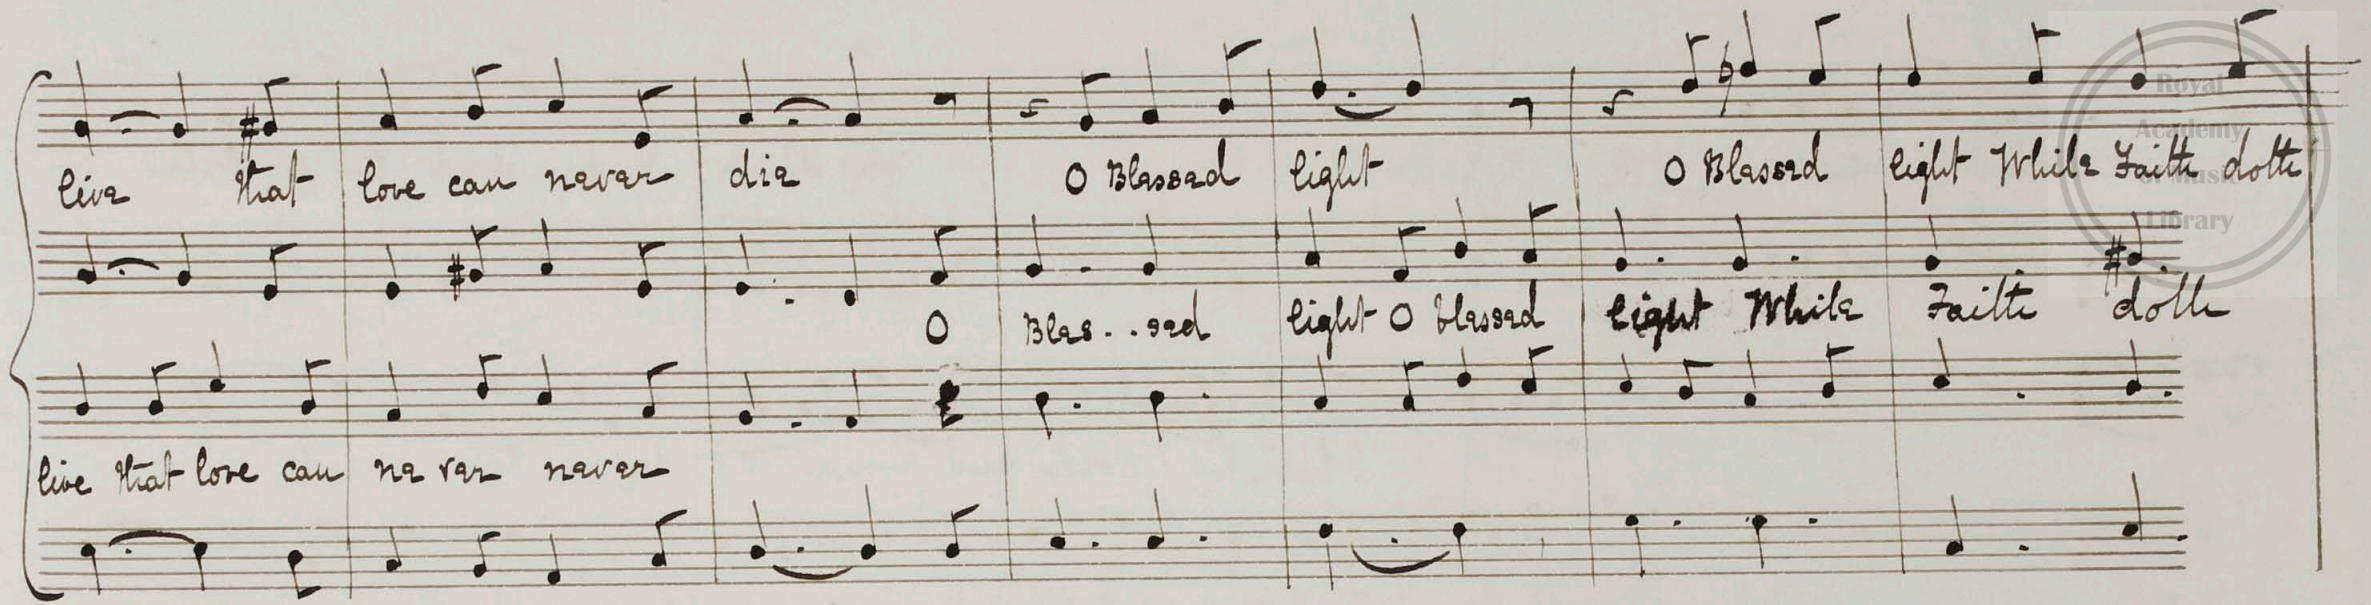 live that love can never die O Blessed light O Blessed light While Faith doth
O Blas..sed light O blessed light While Faith doth
live that love can ne ver never
Royal
Academy
of Music
Library